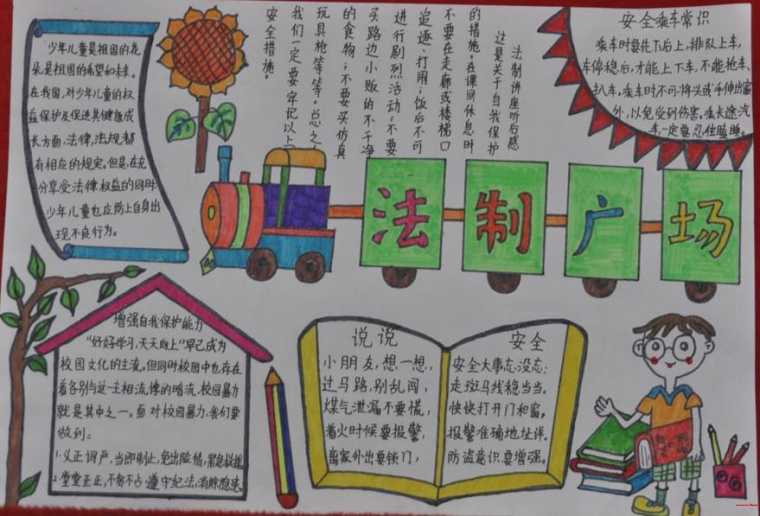 少年儿童是祖国的花
朵是祖国的希望和未来。
在我国,对少年儿童的权
益保护及促进其健康成
长方面,法律,法规都
有相应的规定。但是,在充
分享受法律权益的同时
少年儿童也应防止自身出
现不良行为。
法制讲座听后感
这是关于自我保护
的措施,在课间休息时
不要在走廊或楼梯口
追逐、打闹;饭后不可
进行剧烈活动;不要
买路边小贩的不干净
的食物;不要买仿真
玩具枪等等。总之,
我们一定要牢记以上
安全措施。
安全乘车常识
乘车时要先下后上,排队上车,
车停稳后,才能上下车,不能抢车、
扒车,乘车时不可将头或手伸出窗
外,以免受到伤害。乘长途汽
车一定要忍住瞌睡。
法制广场
增强自我保护能力
“好好学习,天天向上”早已成为
校园文化的主流,但同时校园中也存在
着各别与这一主相流悖的暗流,校园暴力
就是其中之一。面对校园暴力,我们要
做到:
1.义正词严,当即制止,
2.堂堂正正,不奢不占,遵守纪法,消除隐患。
说说
小朋友,想一想,
过马路,别乱闯,
煤气泄漏不要慌,
着火时候要报警,
离家外出要锁门,
安全
安全大事忘没忘:
走斑马线稳当当。
快快打开门和窗,
报警准确地址详。
防盗意识要增强。